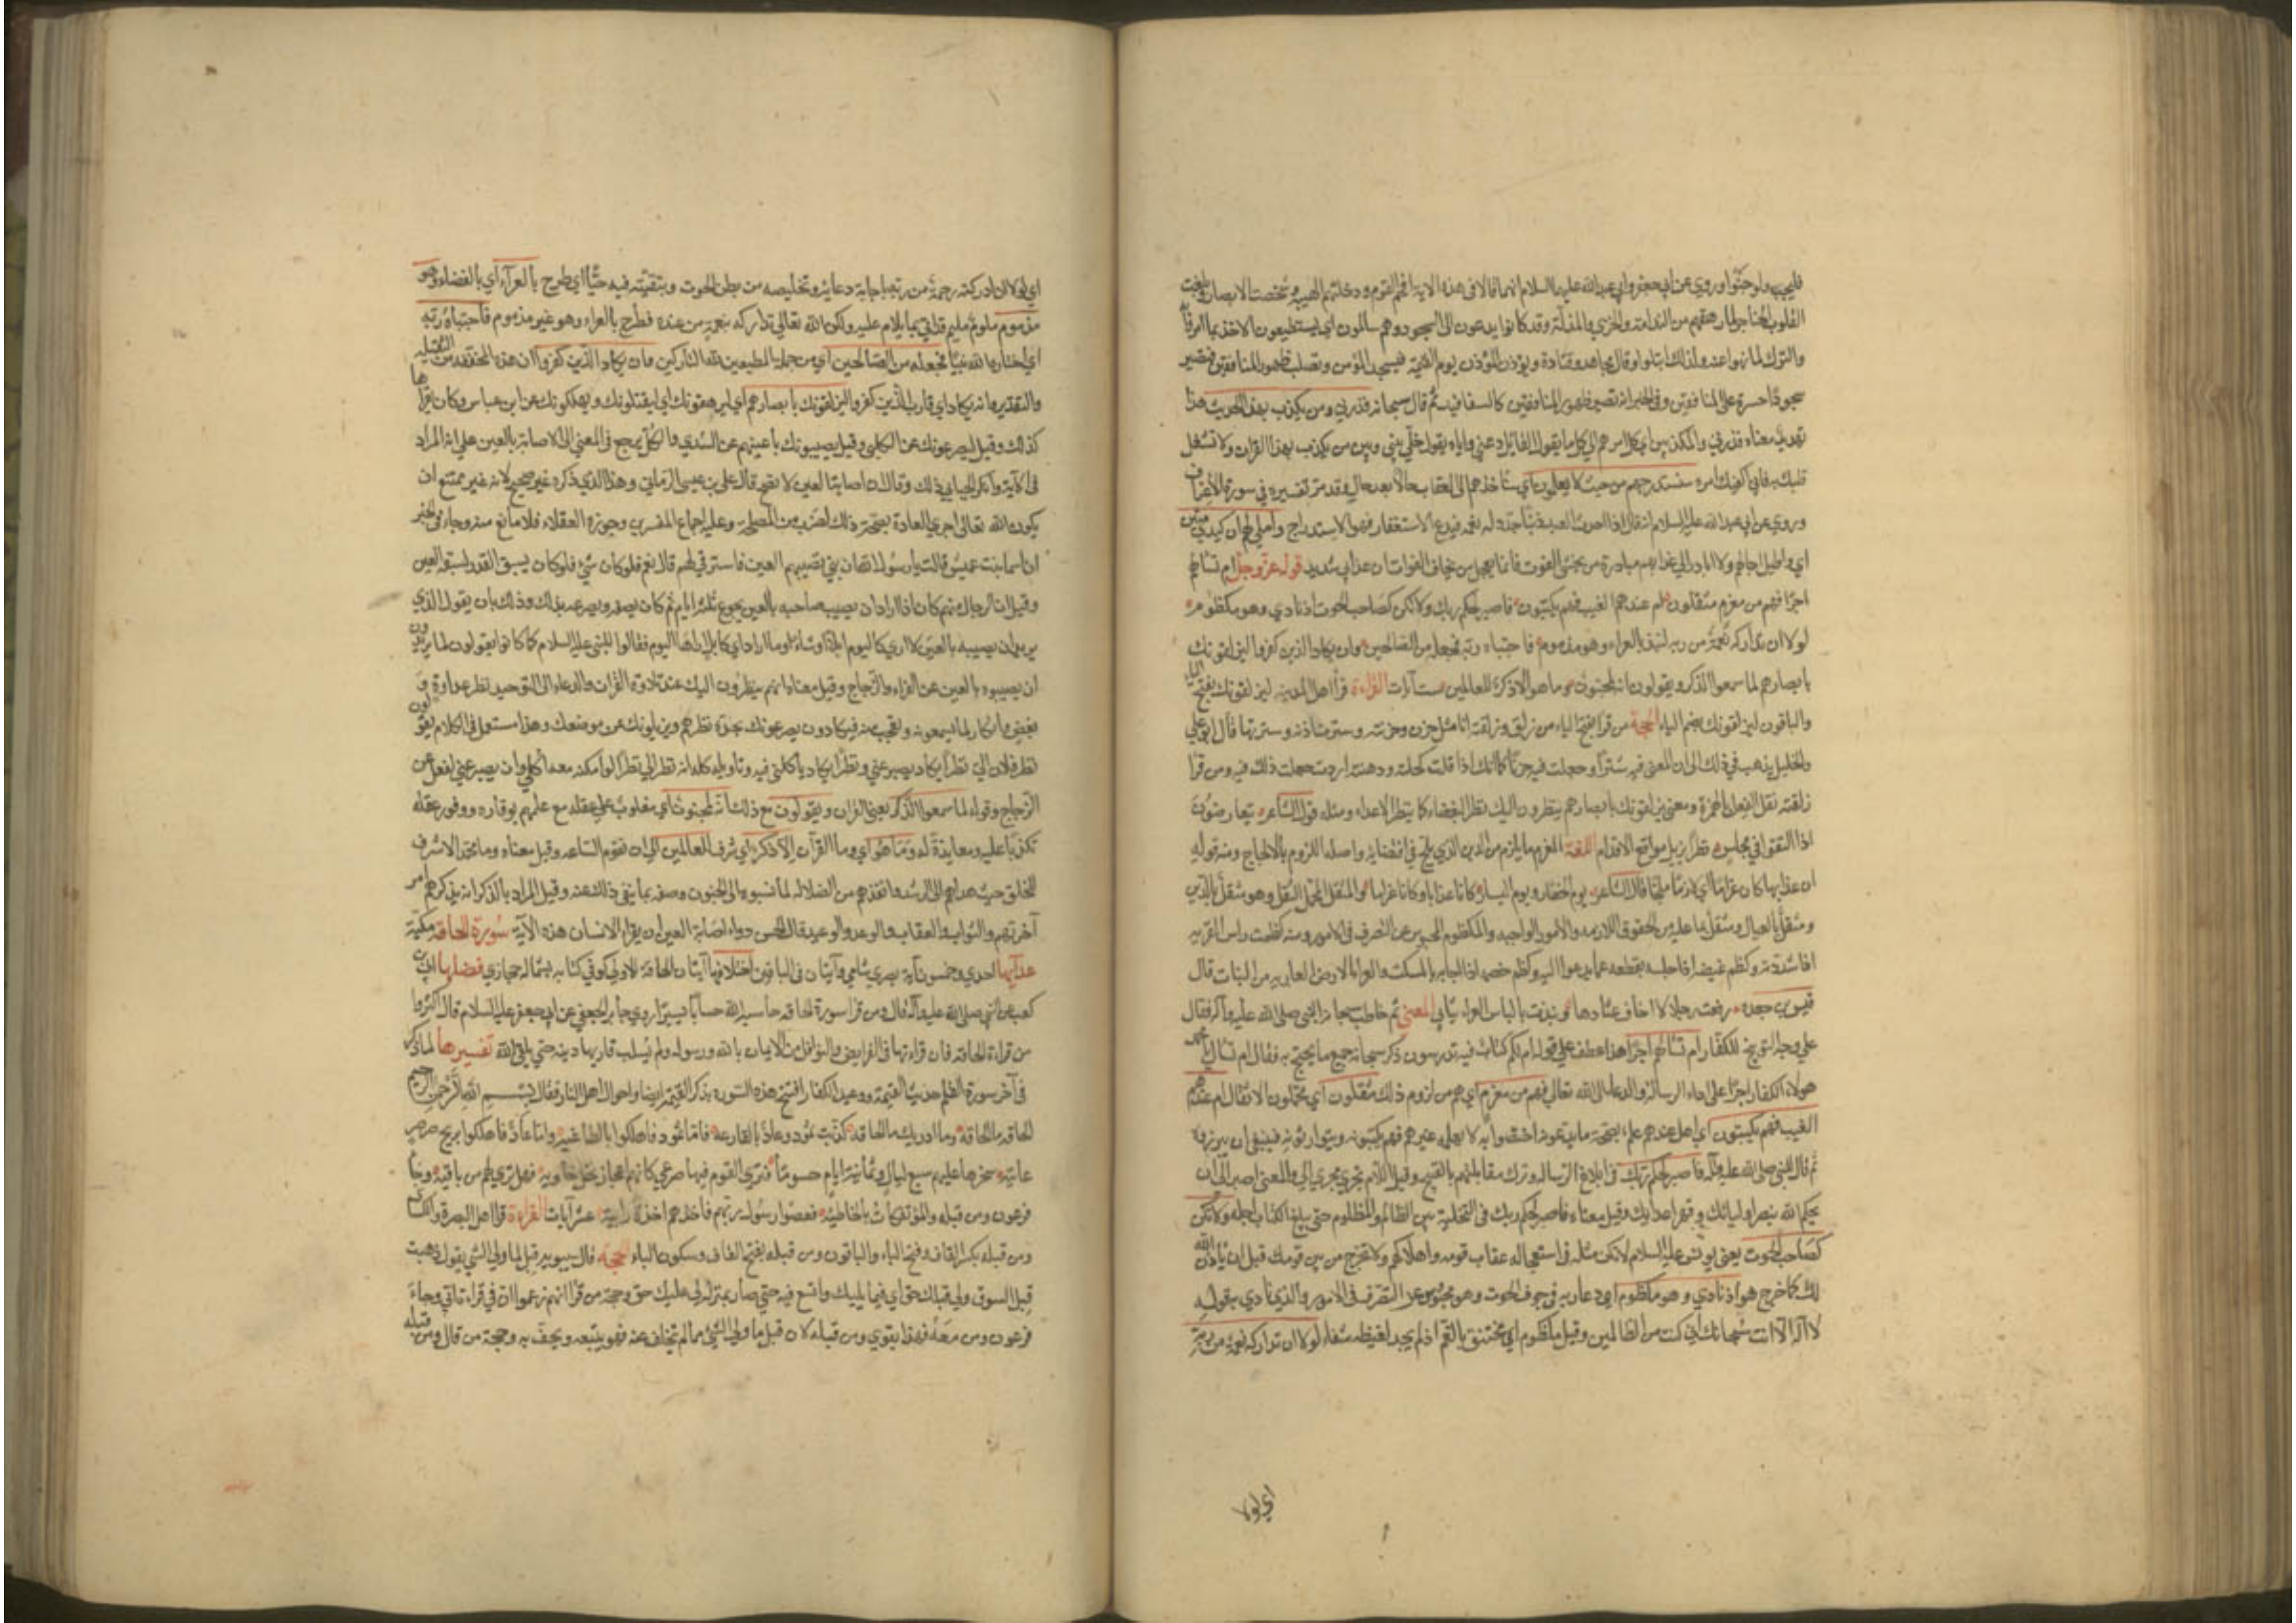 فليجيبوا وحبوا وروي عن ابي جعفر وابي عبد الله عليهما السلام انهما قالا في هذه الاية افحم القوم ودخلتهم الهيبة وشخصت الابصار وبلغت
القلوب الحناجر لما رهقهم من الندامة والخزي والمذلة وقد كانوا يدعون الى السجود وهم سالمون اي يستطيعون الاخذ بما امروا به
والترك لما نهوا عنه ولذلك ابتلوا وقال مجاهد وقتادة ويؤذن المؤذن يوم القيمة فيسجد المؤمن وتصلب ظهور المنافقين فيصير
سجود حسرة على المنافقين وفي الخبر انه تصير ظهور المنافقين كالسفافيد ثم قال سبحانه فذرني ومن يكذب بهذا الحديث هذا
تهديد معناه فذرني والمكذبين اي كل امرهم الي كما يقول القائل دعني واياه يقول خلي بيني وبين من يكذب بهذا القران ولا تشغل
قلبك به فاني اكفيك امره سنستدرجهم من حيث لا يعلمون اي سناخذهم الى العقاب حالا بعد حال وقد مر تفسيره في سورة الاعراف
وروي عن ابي عبد الله عليه السلام انه قال اذا احدث العبد ذنبا جدد له نعمة فيدع الاستغفار فهو الاستدراج واملي لهم ان كيدي متين
اي واطيل اجالهم ولا ابادر الى عذابهم مبادرة من يخشى الفوت فانما يعجل من يخاف الفوات ان عذابي شديد قوله عز وجل ام تسألهم
اجرا فهم من مغرم مثقلون ام عندهم الغيب فهم يكتبون فاصبر لحكم ربك ولا تكن كصاحب الحوت اذ نادي وهو مكظوم
لولا ان تداركه نعمة من ربه لنبذ بالعراء وهو مذموم فاجتباه ربه فجعله من الصالحين وان يكاد الذين كفروا ليزلقونك
بابصارهم لما سمعوا الذكر ويقولون انه لمجنون وما هو الا ذكر للعالمين ست آيات القراءة قرأ اهل المدينة ليزلقونك بفتح الياء
والباقون ليزلقونك بضم الياء الحجة من قرا بفتح الياء من زلق وزلقته انا مثل حزن وحزنته وشترت عينه وشترتها قال ابو علي
والخليل يذهب في ذلك الى ان المعنى فيه شترا وجعلت فيه حزنا كما انك اذا قلت كحلته ودهنته اردت جعلت ذلك فيه ومن قرا
زلقته نقل الفعل بالهمزة ومعنى يزلقونك بابصارهم ينظرون اليك نظر البغضاء كما ينظر الاعداء ومثله قول الشاعر يتعارضون
اذا التقوا في مجلس نظرا يزيل مواقع الاقدام اللغة المغرم ما يلزم من الدين الذي يلج في اقتضايه واصله اللزوم بالالحاح ومنه قوله
ان عذابها كان غراما اي لازما ملحا قال الشاعر يوم الجفار ويوم النسار كانا عذابا وكانا غراما والمثقل المحمل الثقل وهو مثقل بالدين
ومثقل بالعيال ومثقل بما عليه من الحقوق اللازمة والامور الواجبة والمكظوم المحبوس عن التصرف في الامور ومنه كظمت راس القربة
اذا شددته وكظم غيضه اذا حبسه بقطعه عما يدعوا اليه وكظم خصمه اذا اجابه بالمسكت والعراء الارض العارية من النبات قال
قيس بن جعدة رفعت رجلا لا اخاف عثارها ونبذت بالبلد العراء ثيابي المعنى ثم خاطب سبحانه النبي صلى الله عليه وآله فقال
على وجه التوبيخ للكفار ام تسألهم اجرا هذا عطف على قوله ام لكم كتاب فيه تدرسون ذكر سبحانه جميع ما يحتج به فقال ام تسأل يا محمد
هولاء الكفار اجرا على اداء الرسالة والدعاء الى الله تعالى فهم من مغرم اي هم من لزوم ذلك مثقلون اي محملون الاثقال ام عندهم
الغيب فهم يكتبون اي اهل عندهم علم بصحة ما يدعونه اختصوا به لا يعلمه غيرهم فهم يكتبونه ويتوارثونه فينبغي ان يبرزوه
ثم قال للنبي صلى الله عليه وآله فاصبر لحكم ربك في ابلاغ الرسالة وترك مقابلتهم بالقبيح وقيل اللام يجري مجرى الى والمعنى اصبر الى ان
يحكم الله بنصر اوليائك وقهر اعدايك وقيل معناه فاصبر لحكم ربك في التخلية بين الظالم والمظلوم حتى يبلغ الكتاب اجله ولا تكن
كصاحب الحوت يعني يونس عليه السلام لا تكن مثله في استعجاله عقاب قومه واهلاكهم ولا تخرج من بين قومك قبل ان ياذن الله
لك كما خرج هو اذ نادي وهو مكظوم اي دعا ربه في جوف الحوت وهو محبوس عن التصرف في الامور والذي نادي به قوله
لا اله الا انت سبحانك اني كنت من الظالمين وقيل مكظوم اي مختنق بالغم اذ لم يجد لغيظه شفاء لولا ان تداركه نعمة من ربه
اي لولا
اي لولا ان ادركته رحمة من ربه باجابة دعائه وتخليصه من بطن الحوت وبتقيته فيه حيا اي طرح بالعراء اي بالفضاء وهو
مذموم ملوم مليم قد اتي بما يلام عليه ولكن الله تعالى تداركه بنعمة من عنده فطرح بالعراء وهو غير مذموم فاجتباه ربه
اي اختاره الله نبيا فجعله من الصالحين اي من جملة المطيعين لله التاركين وان يكاد الذين كفروا ان هذه المخففة من الثقيلة
والتقدير وانه يكاد اي قارب الذين كفروا ليزلقونك بابصارهم اي ليزهقونك اي يقتلونك ويهلكونك عن ابن عباس وكان يقراها
كذلك وقيل ليصرعونك عن الكلبي وقيل يصيبونك بأعينهم عن السدي والكل يرجع في المعنى الى الاصابة بالعين على انه المراد
في الآية وانكر الجبائي ذلك وقال ان اصابة العين لا تصح قال علي بن عيسى الرماني وهذا الذي ذكره غير صحيح لانه غير ممتنع ان
يكون الله تعالى اجري العادة بصحة ذلك لضرب من المصلحة وعليه اجماع المفسرين وجوزه العقلاء فلا مانع منه وجاء في الخبر
ان اسما بنت عميس قالت يا رسول الله ان بني تصيبهم العين فاسترقي لهم قال نعم فلو كان شئ يسبق القدر لسبقه العين
وقيل ان الرجل منهم كان اذا اراد ان يصيب صاحبه بالعين يجوع ثلثة ايام ثم كان يصفه ويصرعه بذلك وذلك بان يقول الذي
يريد ان يصيبه بالعين لا اري كاليوم ابلا او شاء او ما اراد اي كابل اراها اليوم فقالوا للنبي عليه السلام كما كانوا يقولون لما يريدون
ان يصيبوه بالعين عن الفراء والزجاج وقيل معناه انهم ينظرون اليك عند تلاوة القران والدعاء الى التوحيد نظر عداوة و
بغض وانكار لما يسمعونه وتعجب منه فيكادون يصرعونك بحدة نظرهم ويزيلونك عن موضعك وهذا مستعمل في الكلام يقولون
نظر فلان الي نظرا يكاد يصرعني ونظرا يكاد يأكلني فيه وتاويله كله انه نظر الي نظرا لو امكنه معه اكلي وان يصرعني لفعل عن
الزجاج وقوله لما سمعوا الذكر يعني القران ويقولون مع ذلك انه لمجنون اي مغلوب على عقله مع علمهم بوقاره ووفور عقله
تكذبا عليه ومعاندة له وما هو اي وما القرآن الا ذكر اي شرف للعالمين الى ان تقوم الساعة وقيل معناه وما محمد الا شرف
للخلق حيث هداهم الى الرشد وانقذهم من الضلالة لما نسبوه الى الجنون وصفه بما ينفي ذلك عنه وقيل المراد بالذكر انه يذكرهم امر
آخرتهم والثواب والعقاب والوعد والوعيد قال الحسن دواء اصابة العين ان يقراء الانسان هذه الآية سورة الحاقة مكية
عدد آيها احدي وخمسون آية بصري شامي وآيتان في الباقين اختلافها آيتان الحاقة الاولى كوفي كتابه بشماله حجازي فضلها ابي بن
كعب عن النبي صلى الله عليه وآله قال ومن قرا سورة الحاقة حاسبه الله حسابا يسيرا روي جابر الجعفي عن ابي جعفر عليه السلام قال اكثروا
من قراءة الحاقة فان قراءتها في الفرايض والنوافل من الايمان بالله ورسوله ولم يسلب قاريها دينه حتي يلقي الله تفسيرها لما ذكر
في آخر سورة القلم حديث القيمة ووعيد الكفار افتتح هذه السورة بذكر القيمة ايضا واحوال اهل النار فقال بسم الله الرحمن الرحيم
الحاقة ما الحاقة وما ادريك ما الحاقة كذبت ثمود وعاد بالقارعة فاما ثمود فاهلكوا بالطاغية واما عاد فاهلكوا بريح صرصر
عاتية سخرها عليهم سبع ليال وثمانية ايام حسوما فتري القوم فيها صرعي كانهم اعجاز نخل خاوية فهل تري لهم من باقية وجا
فرعون ومن قبله والمؤتفكات بالخاطئة فعصوا رسول ربهم فاخذهم اخذة رابية عشر آيات القراءة قرا اهل البصرة والكسائي
ومن قبله بكسر القاف وفتح الباء والباقون ومن قبله بفتح القاف وسكون الباء الحجة قال سيبويه قبل لما ولي الشي يقول ذهبت
قبل السوق ولي قبلك حق اي فيما يليك واتسع فيه حتى صار بمنزلة لي عليك حق وحجة من قرا انهم زعموا ان في قراءة ابي وجاء
فرعون ومن معه فهذا يقوي ومن قبله لان قبل ما ولي الشئ مما لم يتخلف عنه فهو يتبعه ويحف به وحجة من قال ومن قبله